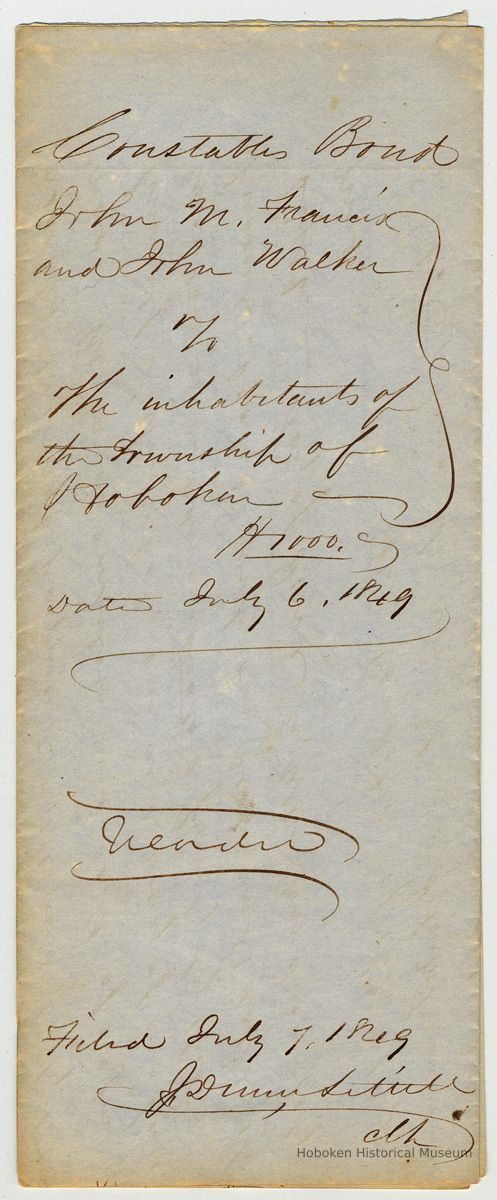 Constables Bond
John M. Francis
and John Walker
To
The inhabitants of
the Township of
Hoboken
$1000.
Date July 6. 1849
Filed July 7. 1849
J Denny
clk
Hoboken Historical Museum